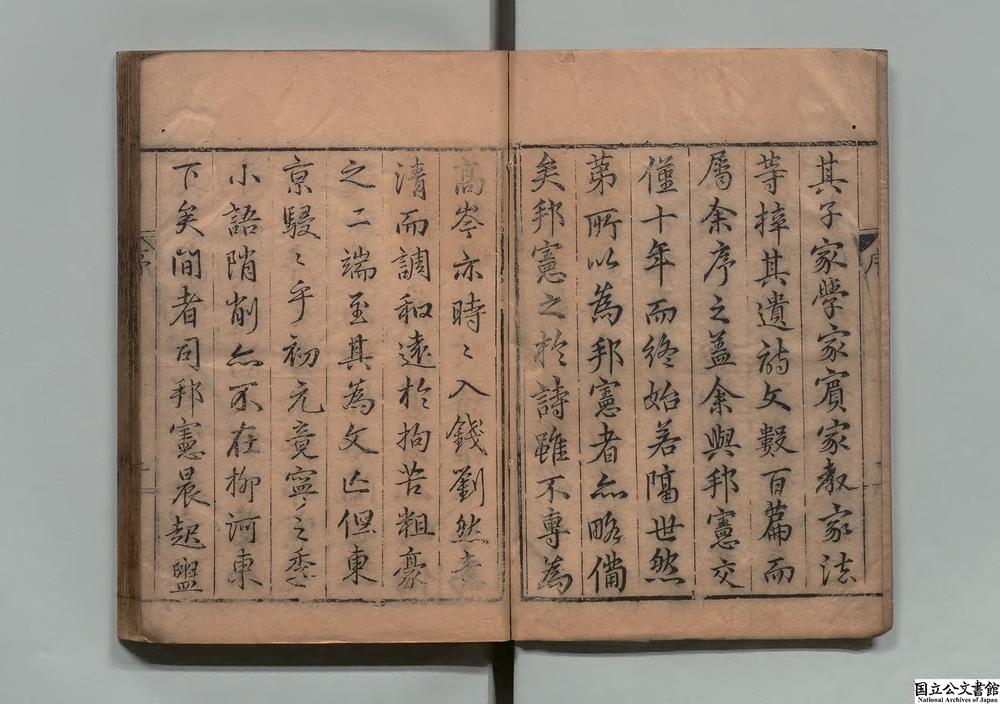 其子家学家賔家教家法
等梓其遺詩文数百篇而
属余序之盖余與邦憲交
僅十年而终始若隔世然
第所以為邦憲者亦略備
矣邦憲之於詩雖不専為
髙岑亦時〻入錢劉然
清而調和逺於拘苦粗豪
之二端至其為文亡但東
亰駸〻乎初元竟寧之季
小語陗削亦不在柳河東
下矣间者司邦憲晨起盥
序
国立公文書館
National Archives of Japan